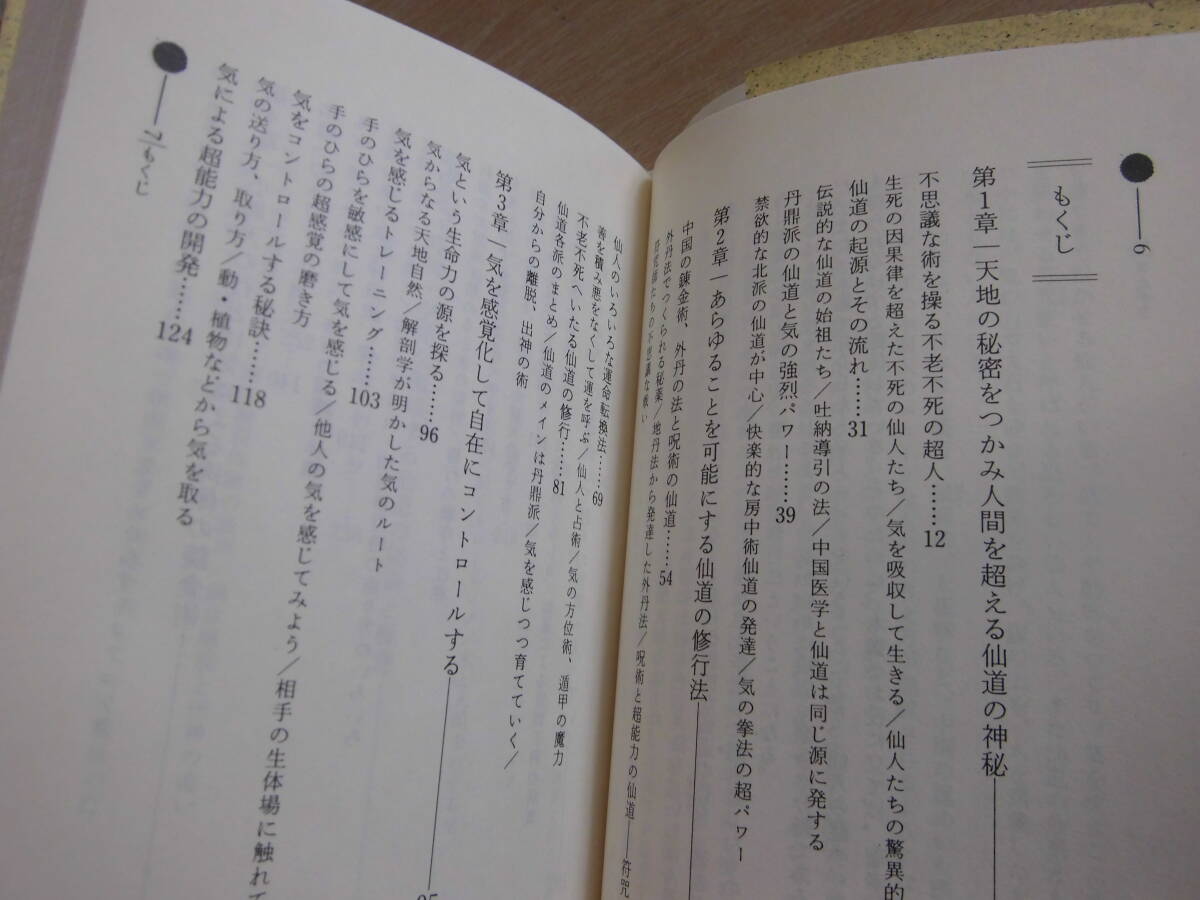 6
もくじ
第1章｜天地の秘密をつかみ人間を超える仙道の神秘
不思議な術を操る不老不死の超人……12
生死の因果律を超えた不死の仙人たち／気を吸収して生きる／仙人たちの驚異的
仙道の起源とその流れ……31
伝説的な仙道の始祖たち／吐納導引の法／中国医学と仙道は同じ源に発する
丹鼎派の仙道と気の強烈パワー……39
禁欲的な北派の仙道が中心／快楽的な房中術仙道の発達／気の拳法の超パワー
第2章｜あらゆることを可能にする仙道の修行法
中国の錬金術、外丹の法と呪術の仙道……54
外丹法でつくられる秘薬／地丹法から発達した外丹法／呪術と超能力の仙道——符呪
符咒師たちの不思議な戦い
仙人のいろいろな運命転換法……69
善を積み悪をなくして運を呼ぶ／仙人と占術／気の方位術、遁甲の魔力
不老不死へいたる仙道の修行……81
仙道各派のまとめ／仙道のメインは丹鼎派／気を感じつつ育てていく／
自分からの離脱、出神の術
第3章｜気を感覚化して自在にコントロールする——95
気という生命力の源を探る……96
気からなる天地自然／解剖学が明かした気のルート
気を感じるトレーニング……103
手のひらを敏感にして気を感じる／他人の気を感じてみよう／相手の生体場に触れて
手のひらの超感覚の磨き方
気をコントロールする秘訣……118
気の送り方、取り方／動・植物などから気を取る
気による超能力の開発……124
7／もくじ